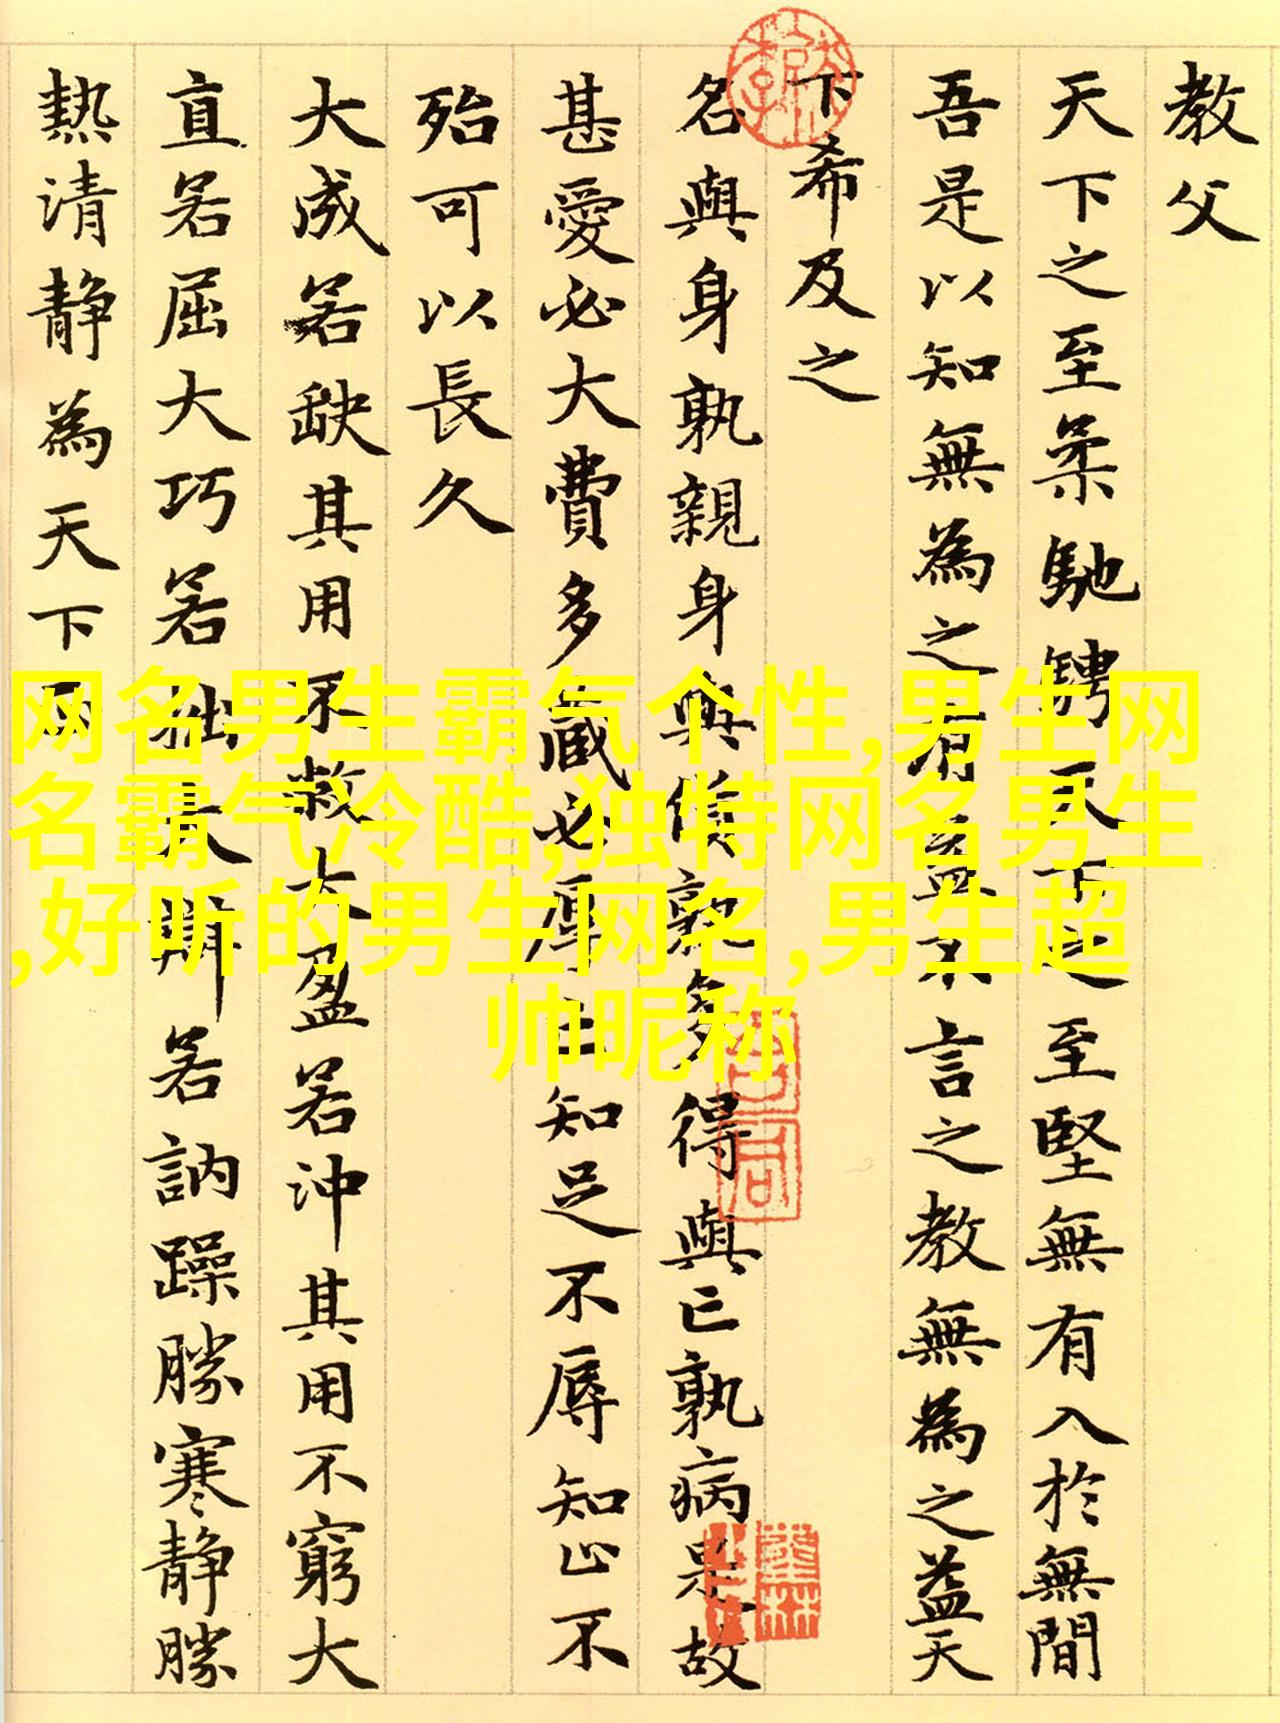 教父
天下之至柔馳騁天下之至堅無有入於無間
吾是以知無為之有益不言之教無為之益天
下希及之
名與身孰親身與貨孰多得與亡孰病是故
甚愛必大費多藏必厚亡知足不辱知止不
殆可以長久
大成若缺其用不敝大盈若沖其用不窮大
直若屈大巧若拙大辯若訥躁勝寒静勝
熱清静為天下正
网名男生霸气个性,男生网
名霸气冷酷,独特网名男生
,好听的男生网名,男生超
帅昵称